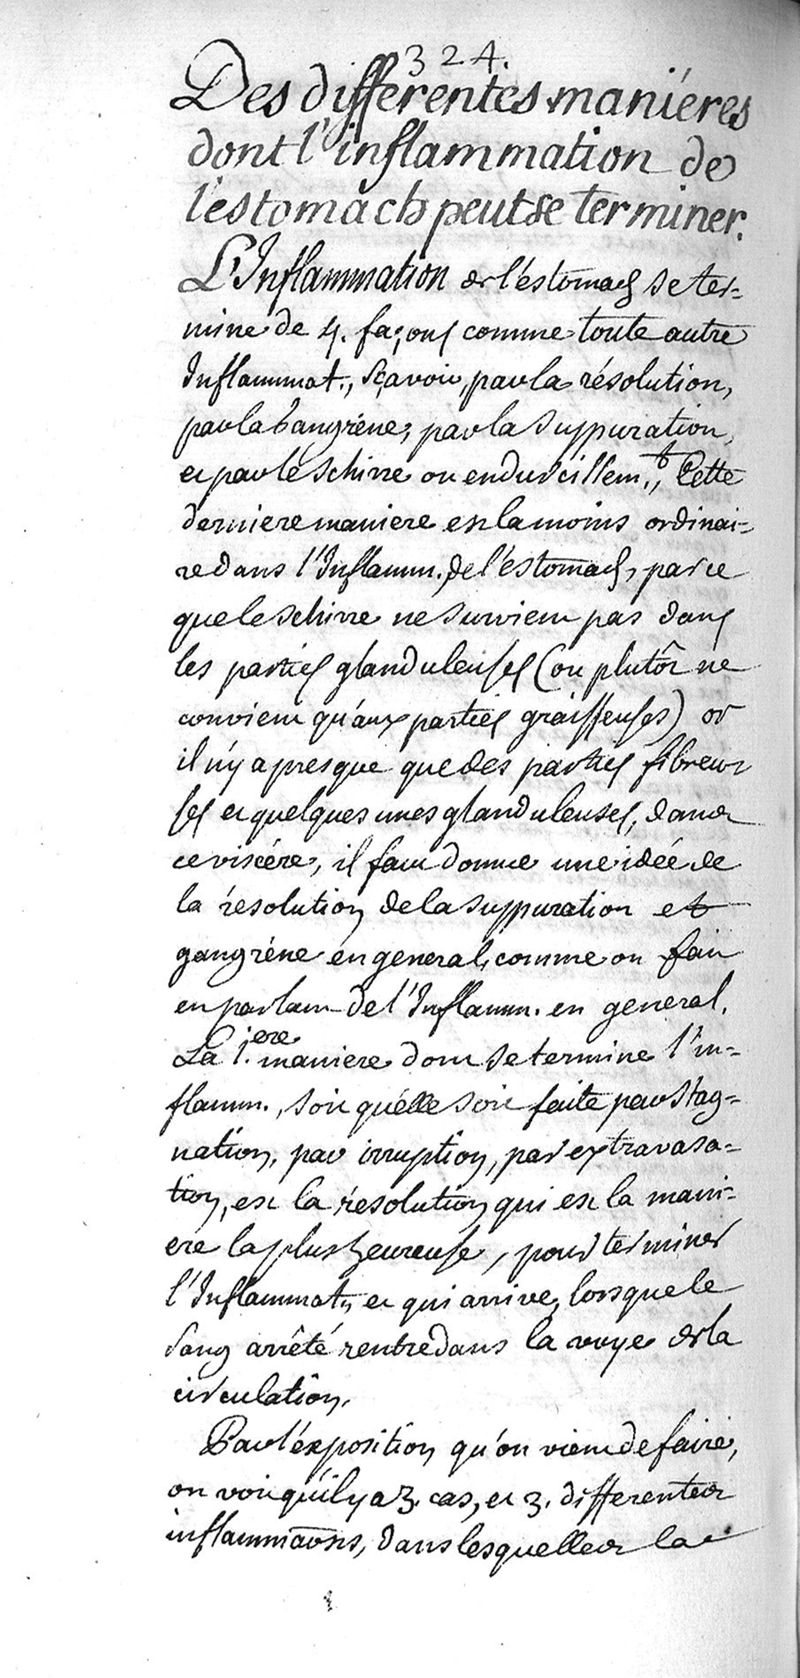 324.
Des differentes maniéres
dont l'inflammation de
l'estomach peut se terminer.
L'Inflammation de l'éstomach se ter-
mine de 4. façons comme toute autre
Inflammat., sçavoir, par la résolution,
par la Gangréne, par la suppuration,
et par le schirre ou endurcissem.t, Cette
derniere maniere est la moins ordinai-
re dans l'Inflamm. de l'éstomach, parce
que le schirre ne survient pas dans
les parties glanduleuses (ou plutôt ne
convient qu'aux parties graisseuses) or
il n'y a presque que des parties fibreu-
ses et quelques unes glanduleuses, dans
ce viscére, il faut donner une idée de
la résolution de la suppuration et
gangréne en general, comme on fait
en parlant de l'Inflamm. en general.
La 1.ere maniere dont se termine l'in-
flamm., soit qu'élle soit faite par stag-
nation, par irruption, par extravasa-
tion, est la résolution qui est la mani-
ere la plus heureuse, pour terminer
l'Inflammat., et qui arrive, lorsque le
sang arrêté rentre dans la voye de la
circulation.
Par l'éxposition qu'on vient de faire,
on voit qu'il y a 3. cas, et 3. differentes
inflammaons, dans lesquelles la